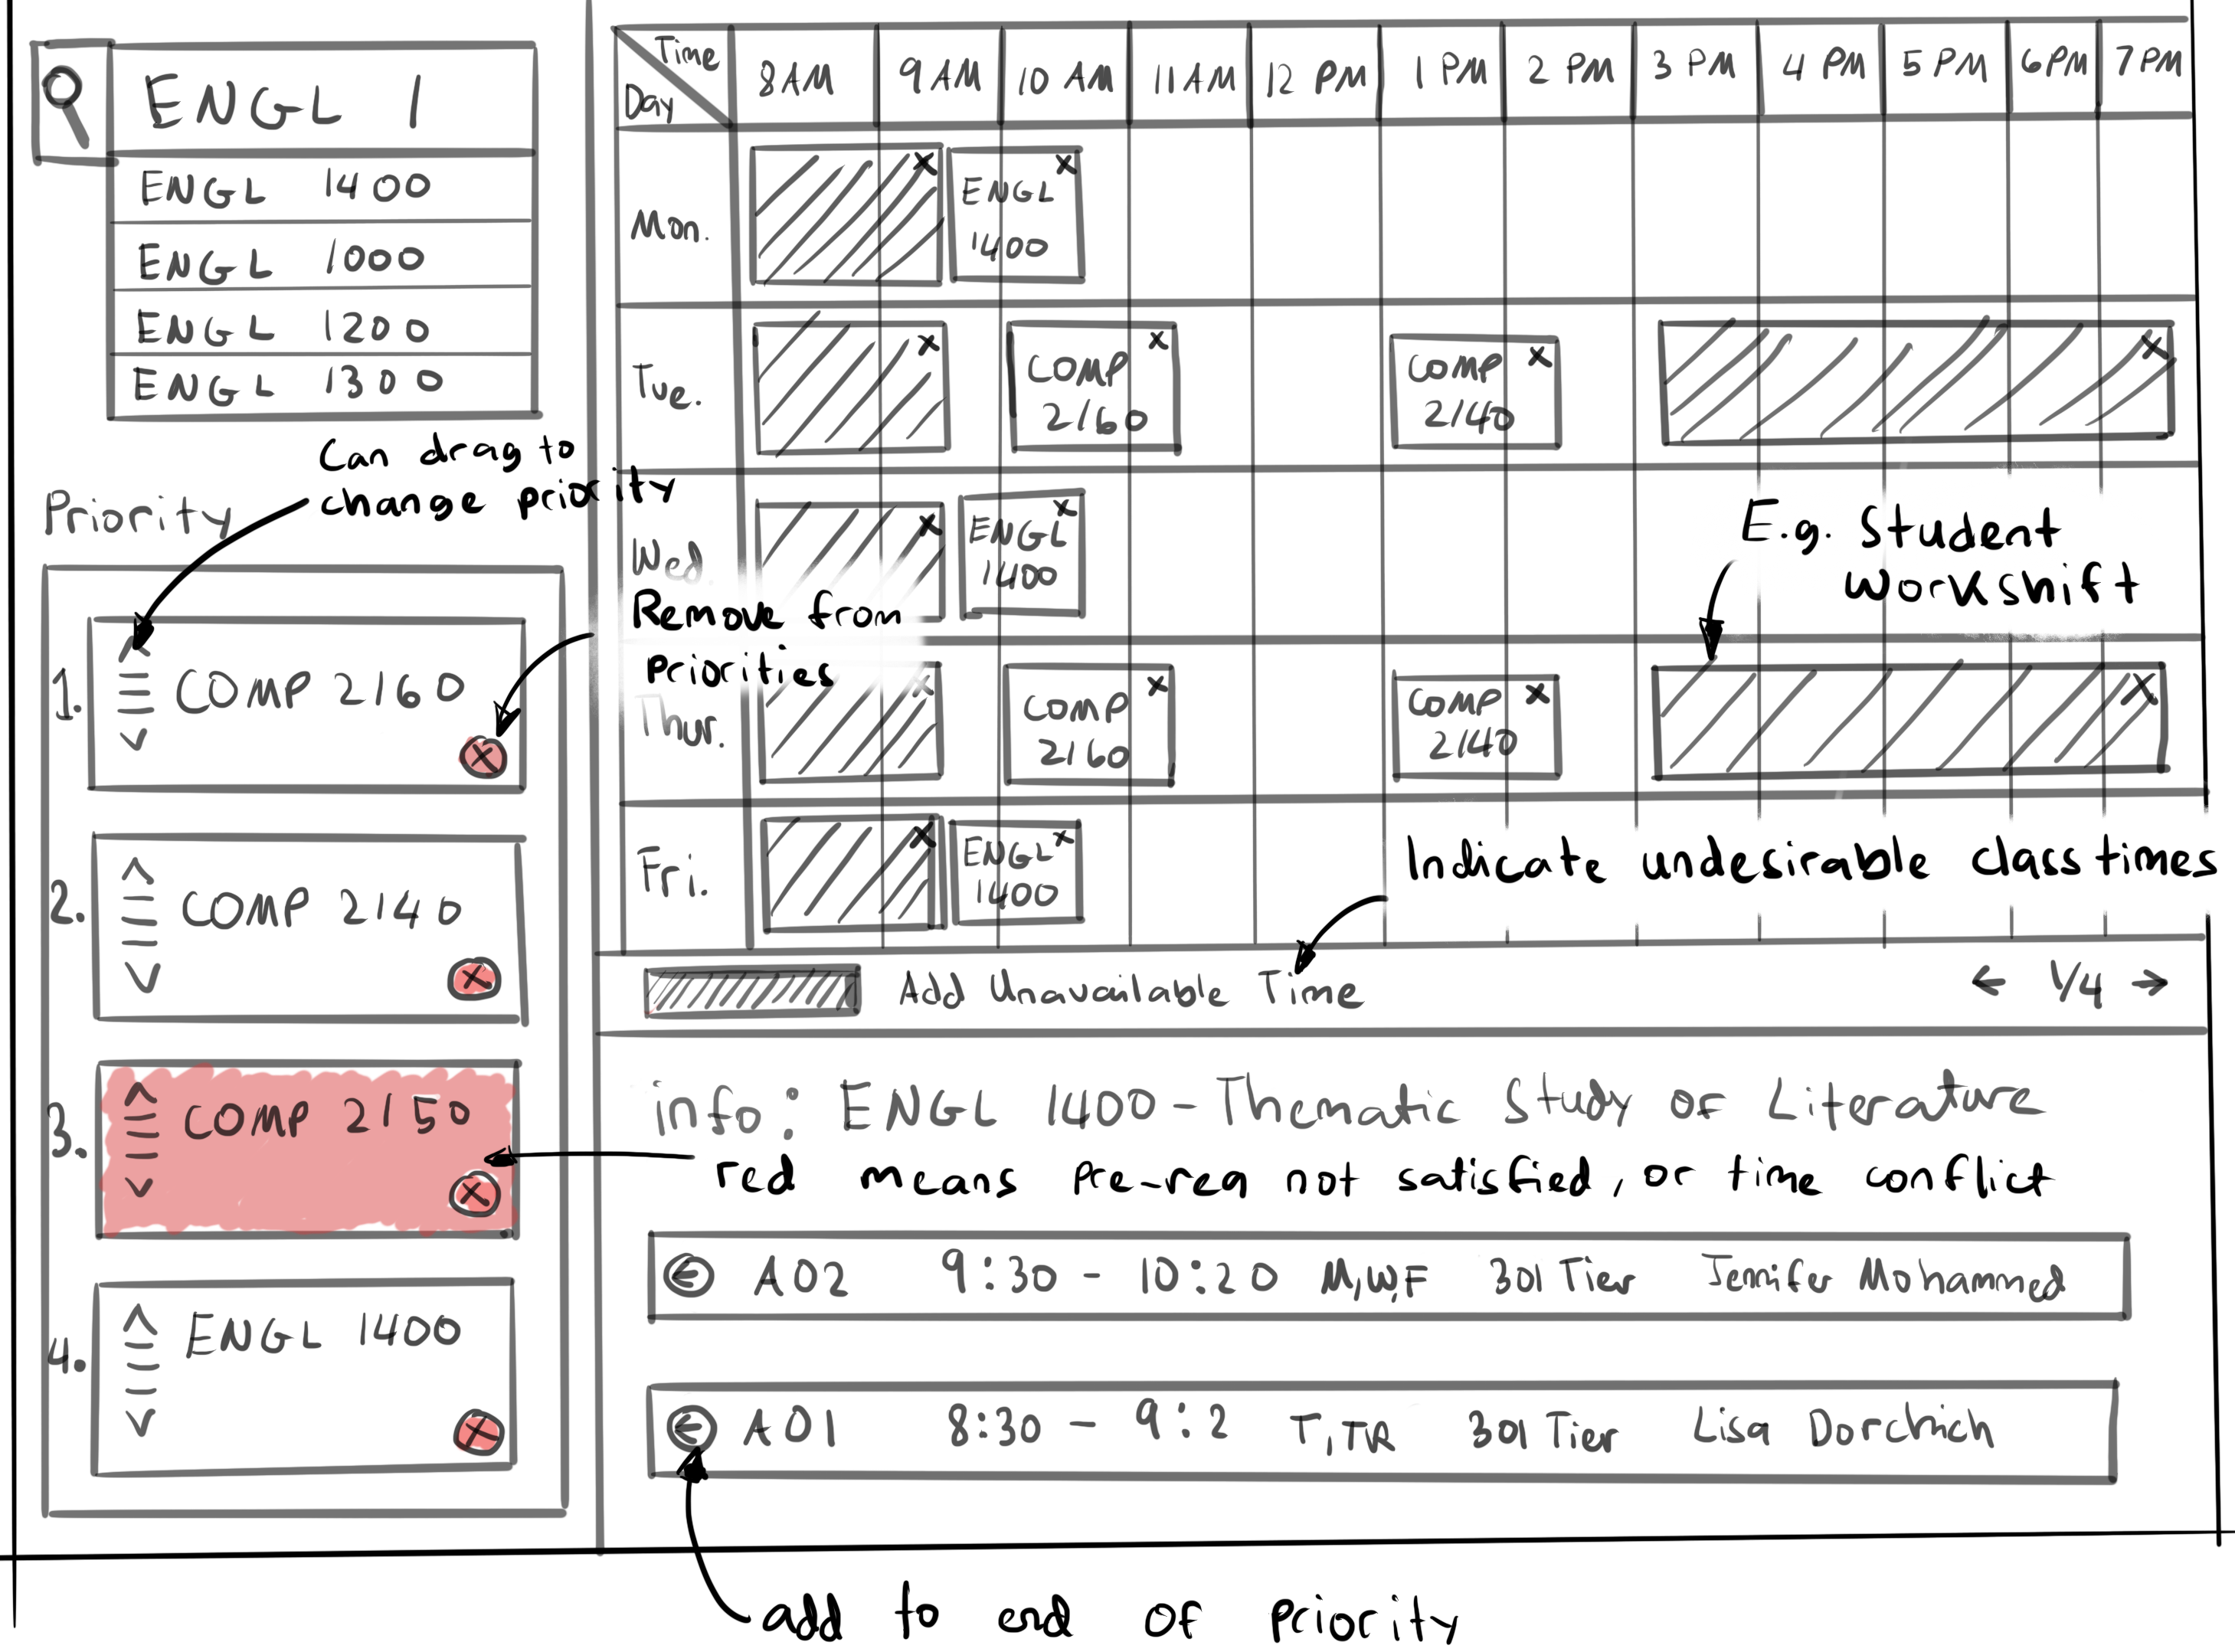 ENGL 1
ENGL 1400
ENGL 1000
ENGL 1200
ENGL 1300
Can drag to
change priority
Priority
1. COMP 2160
2. COMP 2140
3. COMP 2150
4. ENGL 1400
Remove from
Priorities
Time
Day
8 AM 9 AM 10 AM 11 AM 12 PM 1 PM 2 PM 3 PM 4 PM 5 PM 6 PM 7 PM
Mon.
X
ENGL X
1400
Tue.
X
COMP X
2160
COMP X
2140
X
Wed.
X
ENGL X
1400
E.g. Student
Workshift
Thur.
X
COMP X
2160
COMP X
2140
X
Fri.
X
ENGL X
1400
Indicate undesirable class times
Add Unavailable Time
← 1/4 →
info: ENGL 1400 - Thematic Study of Literature
red means pre-req not satisfied, or time conflict
A02 9:30 - 10:20 M,W,F 301 Tier Jennifer Mohammed
A01 8:30 - 9:2 T,TR 301 Tier Lisa
add to end of priority